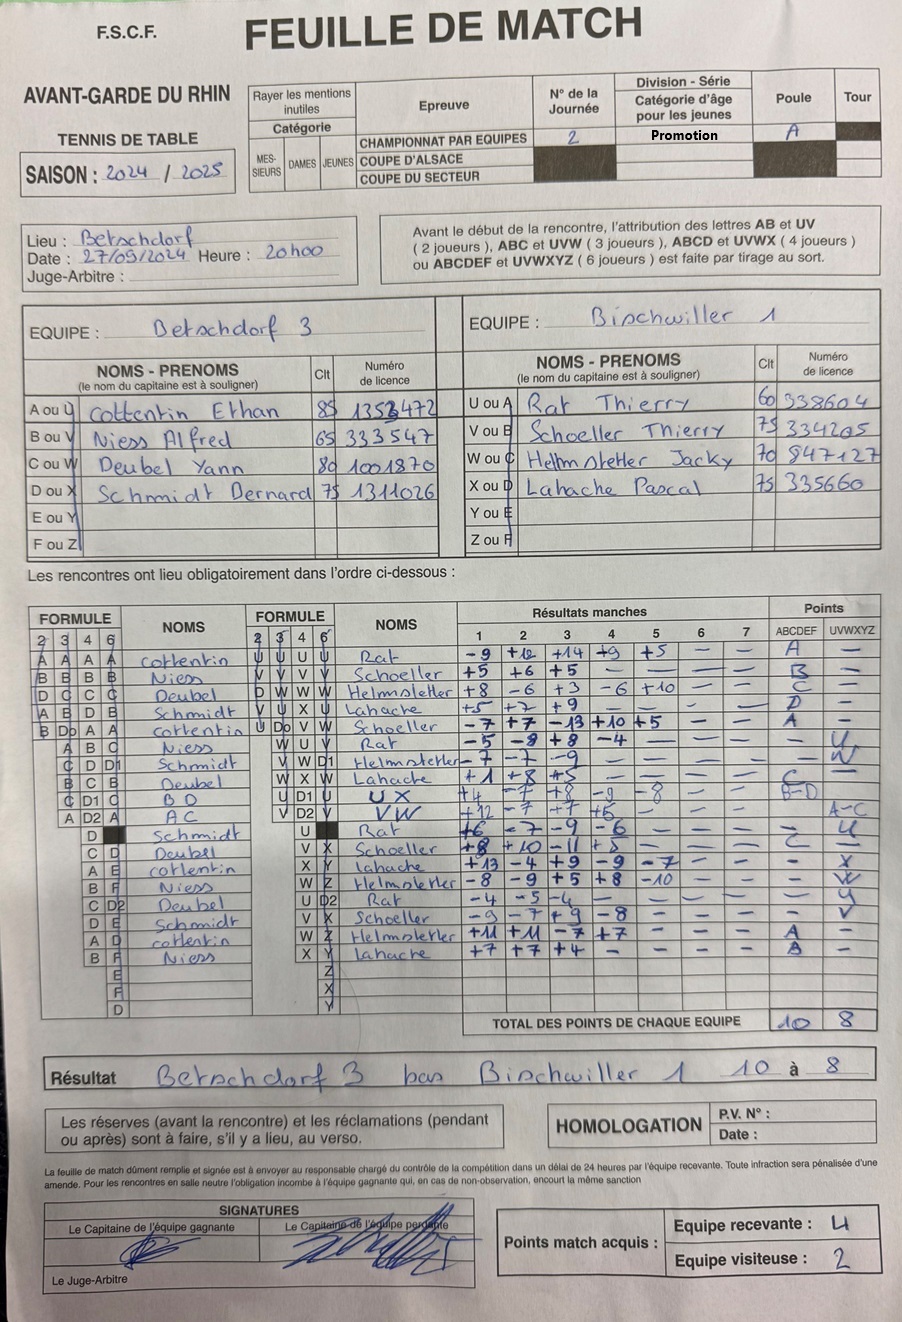 F.S.C.F. FEUILLE DE MATCH
AVANT-GARDE DU RHIN
TENNIS DE TABLE
SAISON : 2024 / 2025
Rayer les mentions inutiles
Catégorie
MES-SIEURS DAMES JEUNES
Epreuve N° de la Journée Division - Série Catégorie d'âge pour les jeunes Poule Tour
CHAMPIONNAT PAR EQUIPES 2 Promotion A
COUPE D'ALSACE
COUPE DU SECTEUR
Lieu : Betschdorf
Date : 27/09/2024 Heure : 20h00
Juge-Arbitre :
Avant le début de la rencontre, l'attribution des lettres AB et UV
( 2 joueurs ), ABC et UVW ( 3 joueurs ), ABCD et UVWX ( 4 joueurs )
ou ABCDEF et UVWXYZ ( 6 joueurs ) est faite par tirage au sort.
EQUIPE : Betschdorf 3
NOMS - PRENOMS Clt Numéro
(le nom du capitaine est à souligner) de licence
A ou U Cottentin Ethan 85 1353472
B ou V Niess Alfred 65 333547
C ou W Deubel Yann 80 1001870
D ou X Schmidt Bernard 75 1311026
E ou Y
F ou Z
EQUIPE : Bischwiller 1
NOMS - PRENOMS Clt Numéro
(le nom du capitaine est à souligner) de licence
U ou A Rat Thierry 60 338604
V ou B Schoeller Thierry 75 334205
W ou C Helmstetter Jacky 70 847127
X ou D Lahache Pascal 75 335660
Y ou E
Z ou F
Les rencontres ont lieu obligatoirement dans l'ordre ci-dessous :
FORMULE NOMS FORMULE NOMS Résultats manches Points
2 3 4 6 2 3 4 6 1 2 3 4 5 6 7 ABCDEF UVWXYZ
A A A A cottentin U U U U Rat -9 +12 +14 +9 +5 – – A –
B B B B Niess V V V V Schoeller +5 +6 +5 – – – – B –
D C C C Deubel D W W W Helmstetter +8 -6 +3 -6 +10 – – C –
A B D B Schmidt V U X U Lahache +5 +7 +9 – – – – D –
B Dp A A cottentin U Dp V W Schoeller -7 +7 -13 +10 +5 – – A –
A B C Niess W U V Rat -5 -8 +8 -4 – – – – U
C D D1 Schmidt V W D1 Helmstetter -7 -7 -9 – – – – – W
B C B Deubel W X W Lahache +1 +8 +5 – – – – C –
C D1 C BD U D1 U UX +4 -7 +8 -9 -8 – – B-D
A D2 A AC V D2 V VW +12 -7 +7 +6 – – – A-C
D Schmidt U Rat +6 -7 -9 -6 – – – – U
C D Deubel V X Schoeller +8 +10 -11 +5 – – – C –
A E cottentin X Y Lahache +13 -4 +9 -9 -7 – – – X
B F Niess W Z Helmstetter -8 -9 +5 +8 -10 – – – W
C D2 Deubel U D2 Rat -4 -5 -4 – – – – – U
D E Schmidt V X Schoeller -9 -7 +9 -8 – – – – V
A D cottentin W Z Helmstetter +11 +11 -7 +7 – – – A –
B F Niess X Y Lahache +7 +7 +4 – – – – B –
E Z
F X
D Y
TOTAL DES POINTS DE CHAQUE EQUIPE 10 8
Résultat Betschdorf 3 bas Bischwiller 1 10 à 8
Les réserves (avant la rencontre) et les réclamations (pendant
ou après) sont à faire, s'il y a lieu, au verso.
HOMOLOGATION P.V. N° :
Date :
La feuille de match dûment remplie et signée est à envoyer au responsable chargé du contrôle de la compétition dans un délai de 24 heures par l'équipe recevante. Toute infraction sera pénalisée d'une
amende. Pour les rencontres en salle neutre l'obligation incombe à l'équipe gagnante qui, en cas de non-observation, encourt la même sanction
SIGNATURES
Le Capitaine de l'équipe gagnante Le Capitaine de l'équipe perdante
Le Juge-Arbitre
Points match acquis : Equipe recevante : 4
Equipe visiteuse : 2